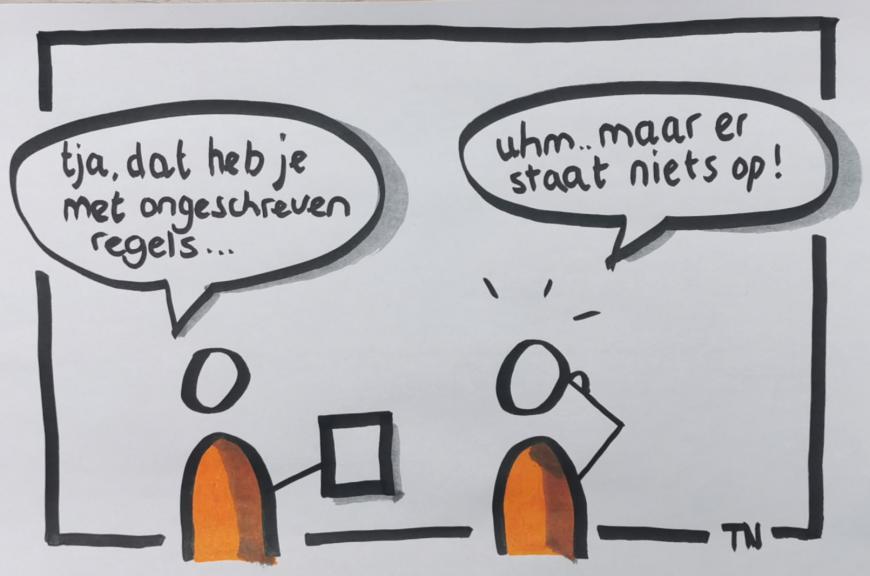 tja, dat heb je
met ongeschreven
regels...
uhm.. maar er
staat niets op!
TN